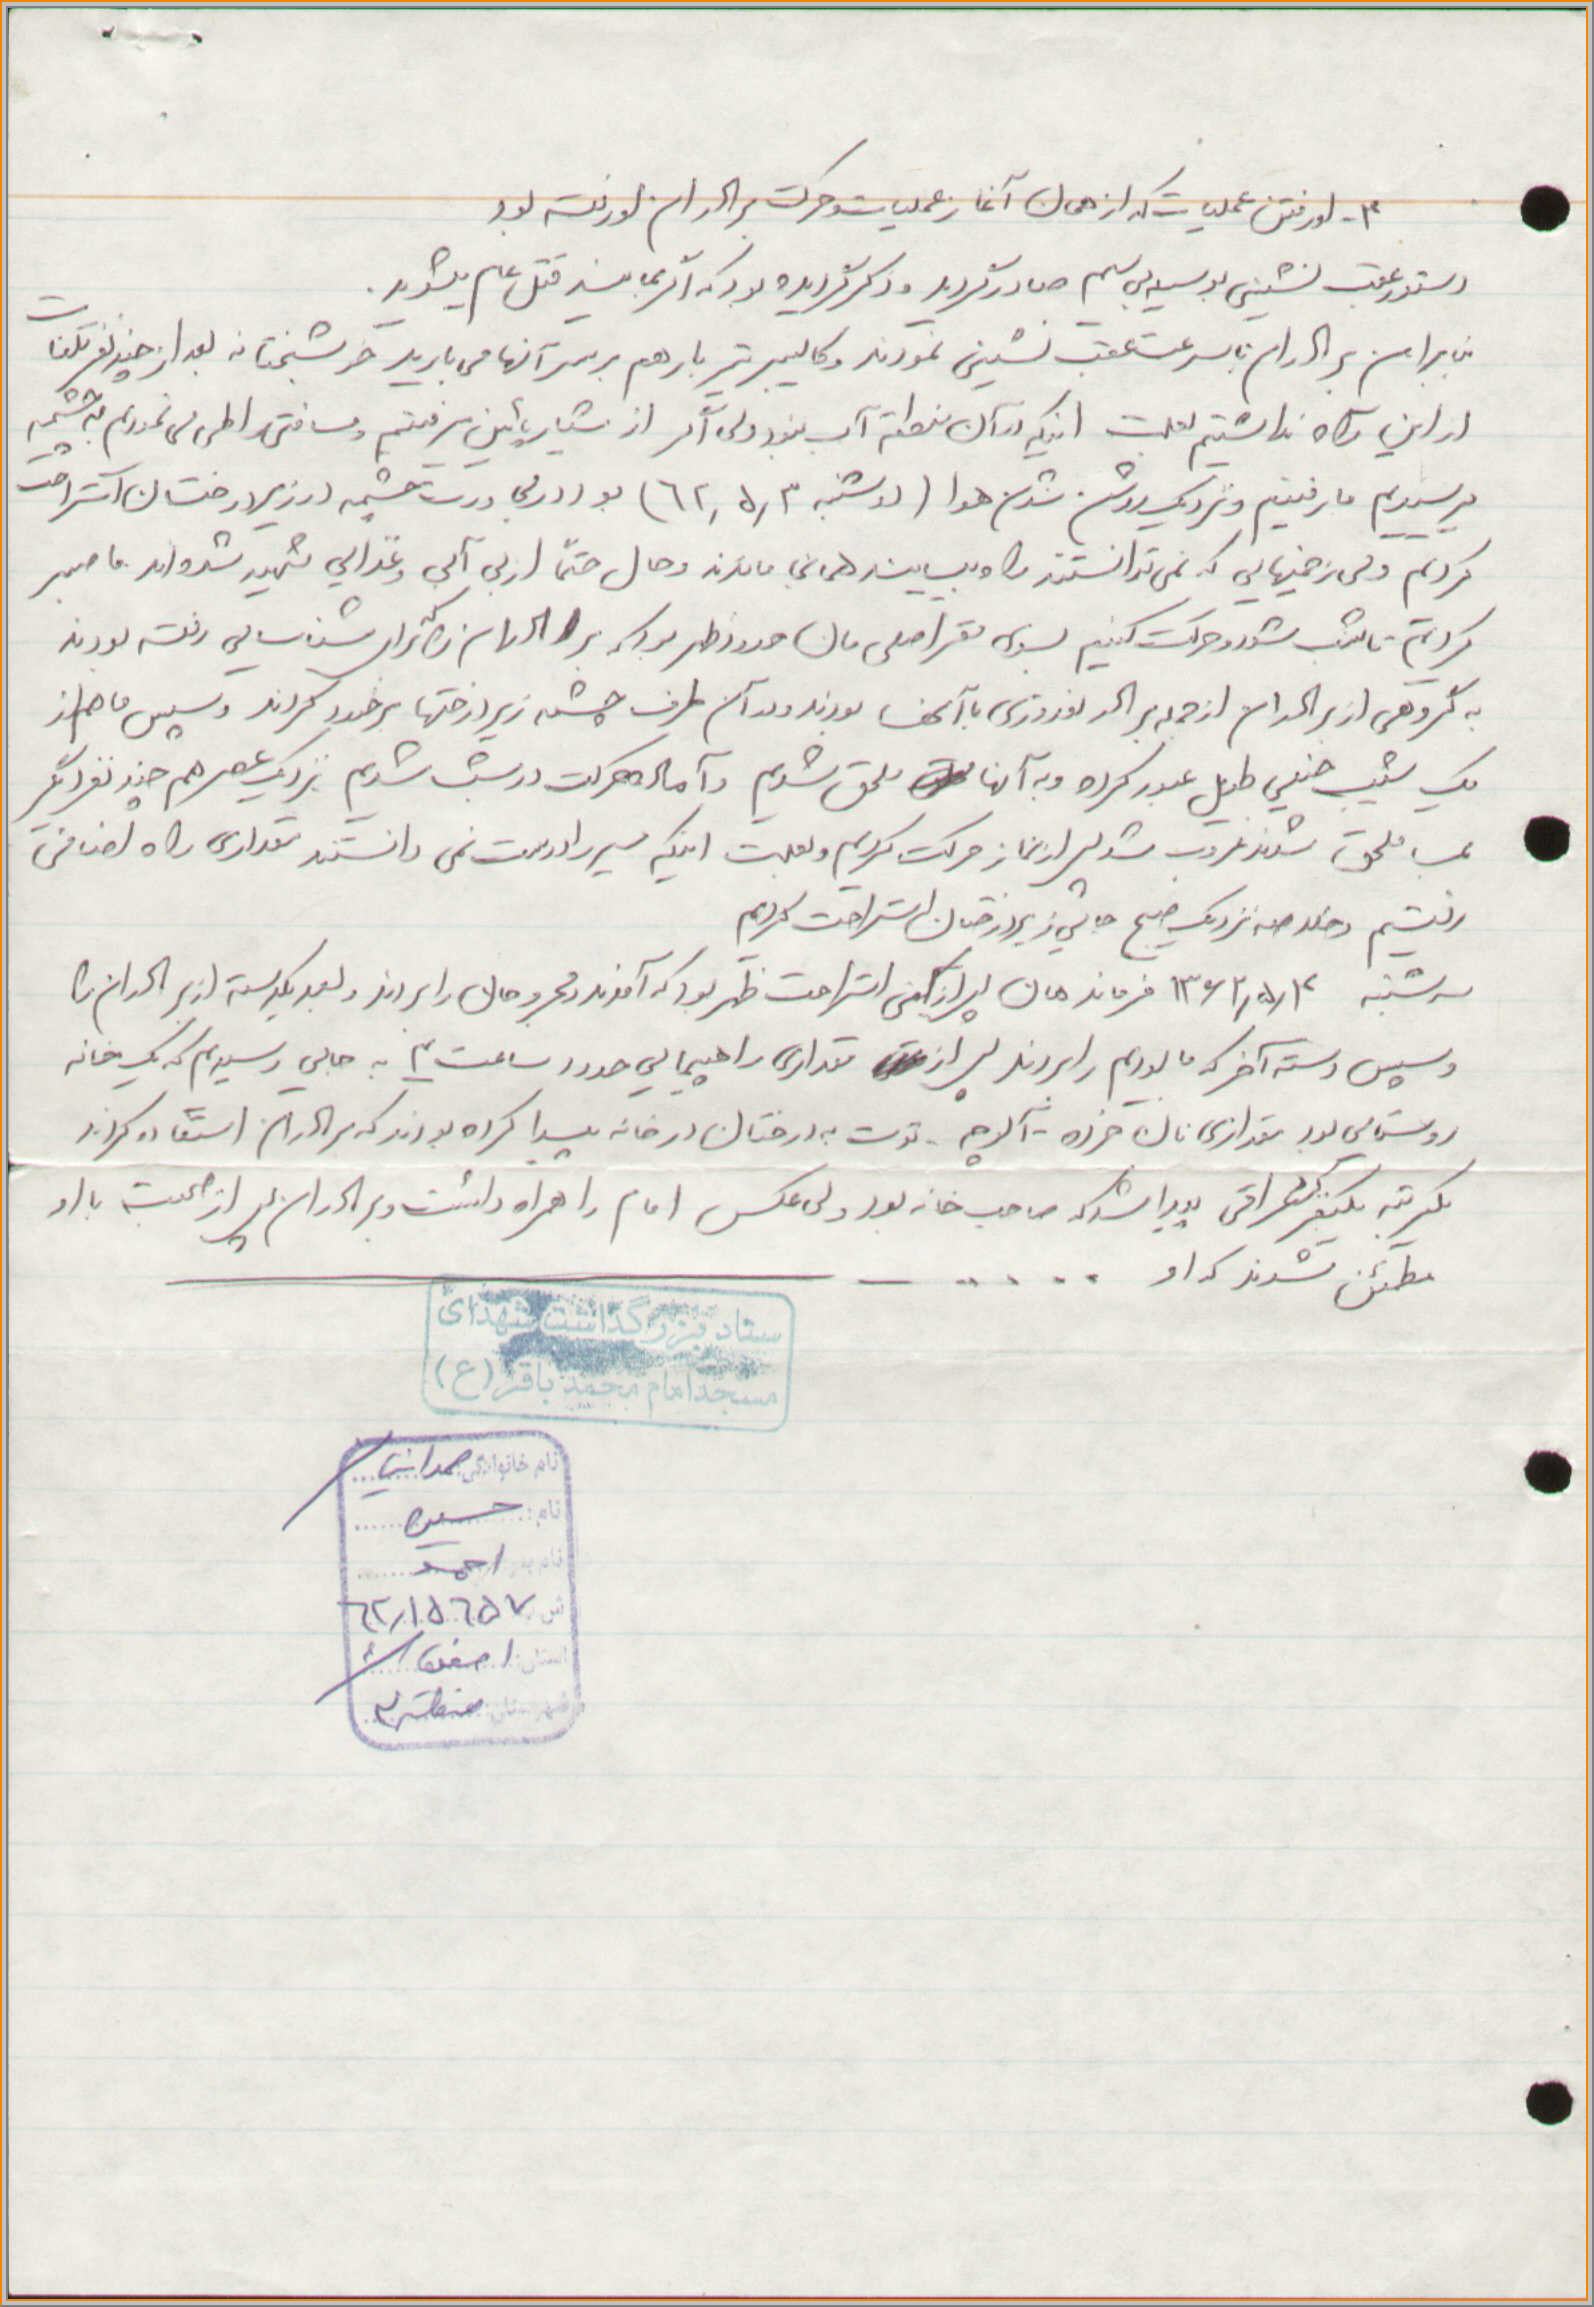 ۳- لو رفتن عملیات که از همان آغاز عملیات و حرکت برادران لو رفته بود
دستور عقب نشینی بوسیله بی سیم صادر گردید و ذکر گردیده بود که اگر بمانید قتل عام میشوید.
بنابراین برادران با سرعت عقب نشینی نمودند و کالیبر تیر بار هم بر سر آنها می بارید خوشبختانه بعد از چند نفر تلفات
از این راه نداشتیم بعلت اینکه در آن منطقه آب نبود ولی اگر از شیار پائین میرفتیم و مسافتی را طی می نمودیم به چشمه
میرسیدیم ما رفتیم و نزدیک روشن شدن هوا (دوشنبه ۶۲٫۵٫۳) بود در پی درست چشمه در زیر درختان استراحت
کردیم ولی زخمیهایی که نمی توانستند راه بیایند همانجا ماندند و حال حتماً از بی آبی و غذایی شهید شده اند ما صبر
کردیم تا شب شود و حرکت کنیم بسوی مقر اصلی مان حدود ظهر بود که برادران که برای شناسایی رفته بودند
به گروهی از برادران از جمله برادر نوروزی با آنها بودند و در آن طرف چشمه زیر درختها برخورد کردند و سپس ما هم از
یک شیب خیلی طویل عبور کرده و به آنها ملحق شدیم و آماده حرکت در شب شدیم نزدیک عصر هم چند نفر دیگر
بما ملحق شدند غروب شد پس از نماز حرکت کردیم و بعلت اینکه مسیر را درست نمی دانستند مقداری راه اضافی
رفتیم و خلاصه نزدیک صبح جائی زیر درختان استراحت کردیم
سه شنبه ۱۳۶۲٫۵٫۴ فرمانده مان پس از کمی استراحت ظهر بود که آمدند و مجروحان را بردند و بعد یکدسته از برادران را
و سپس دسته آخر که ما بودیم را بردند پس از مقداری راهپیمایی حدود ساعت ۴ به جایی رسیدیم که یک خانه
روستایی بود مقداری نان خورده - آلوچه - توت به درختان در خانه پیدا کرده بودند که برادران استفاده کردند
یکمرتبه یکنفر عراقی پیدا شد که صاحب خانه بود ولی عکس امام را همراه داشت و برادران پس از صحبت با او
مطمئن شدند که او .....
ستاد بزرگداشت شهدای
مسجد امام محمد باقر (ع)
نام خانوادگی: صمدانیان
نام: حسین
نام پدر: احمد
ش: ۶۲٫۱۵۶۵۷
استان: اصفهان
شهرستان: منطقه ۲